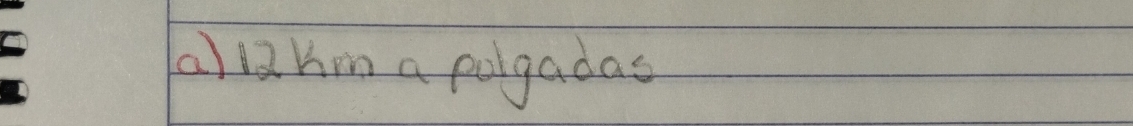 a) 12 Km a pulgadas